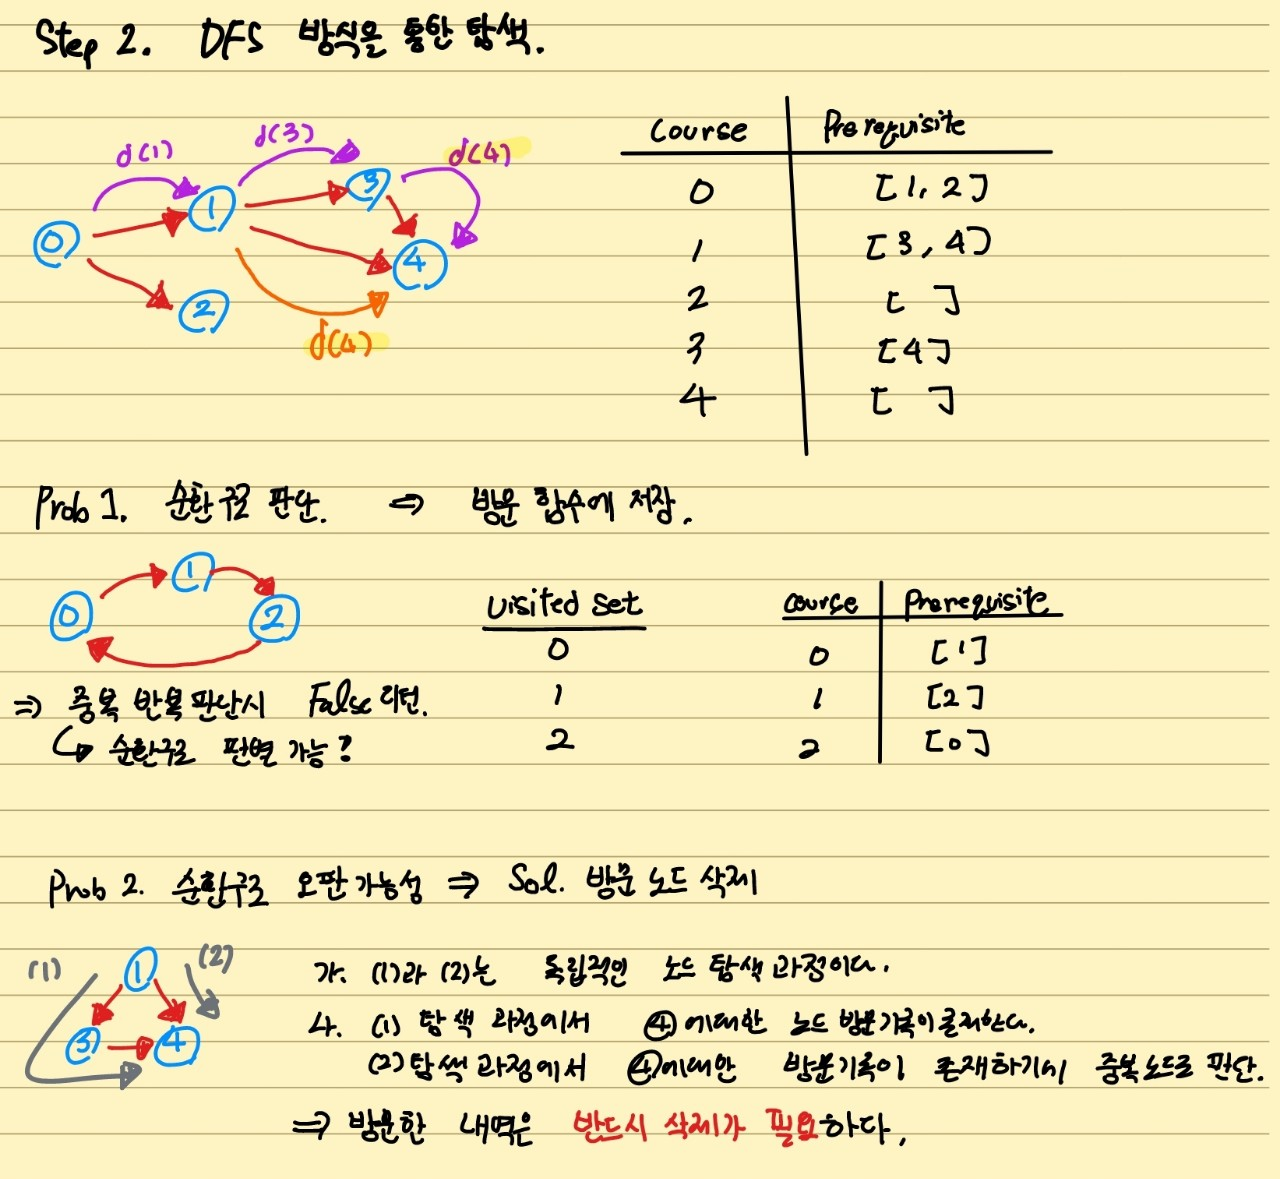 Step 2. DFS 방식을 통한 탐색.
d(1) d(3) d(4)
0 1 3 4 2
d(4)
Course Prerequisite
0 [1, 2]
1 [3, 4]
2 [ ]
3 [4]
4 [ ]
Prob 1. 순환구조 판단. ⇒ 방문 함수에 저장.
0 1 2
⇒ 중복 반복 판단시 False 리턴.
↳ 순환구조 판별 가능?
Visited set
0
1
2
course Prerequisite
0 [1]
1 [2]
2 [0]
Prob 2. 순환구조 오판 가능성 ⇒ Sol. 방문 노드 삭제
(1) 1 (2)
3 4
가. (1)과 (2)는 독립적인 노드 탐색 과정이다.
4. (1) 탐색 과정에서 ④에대한 노드 방문기록이 존재한다.
(2) 탐색 과정에서 ④에대한 방문기록이 존재하기에 중복노드로 판단.
⇒ 방문한 내역은 반드시 삭제가 필요하다.